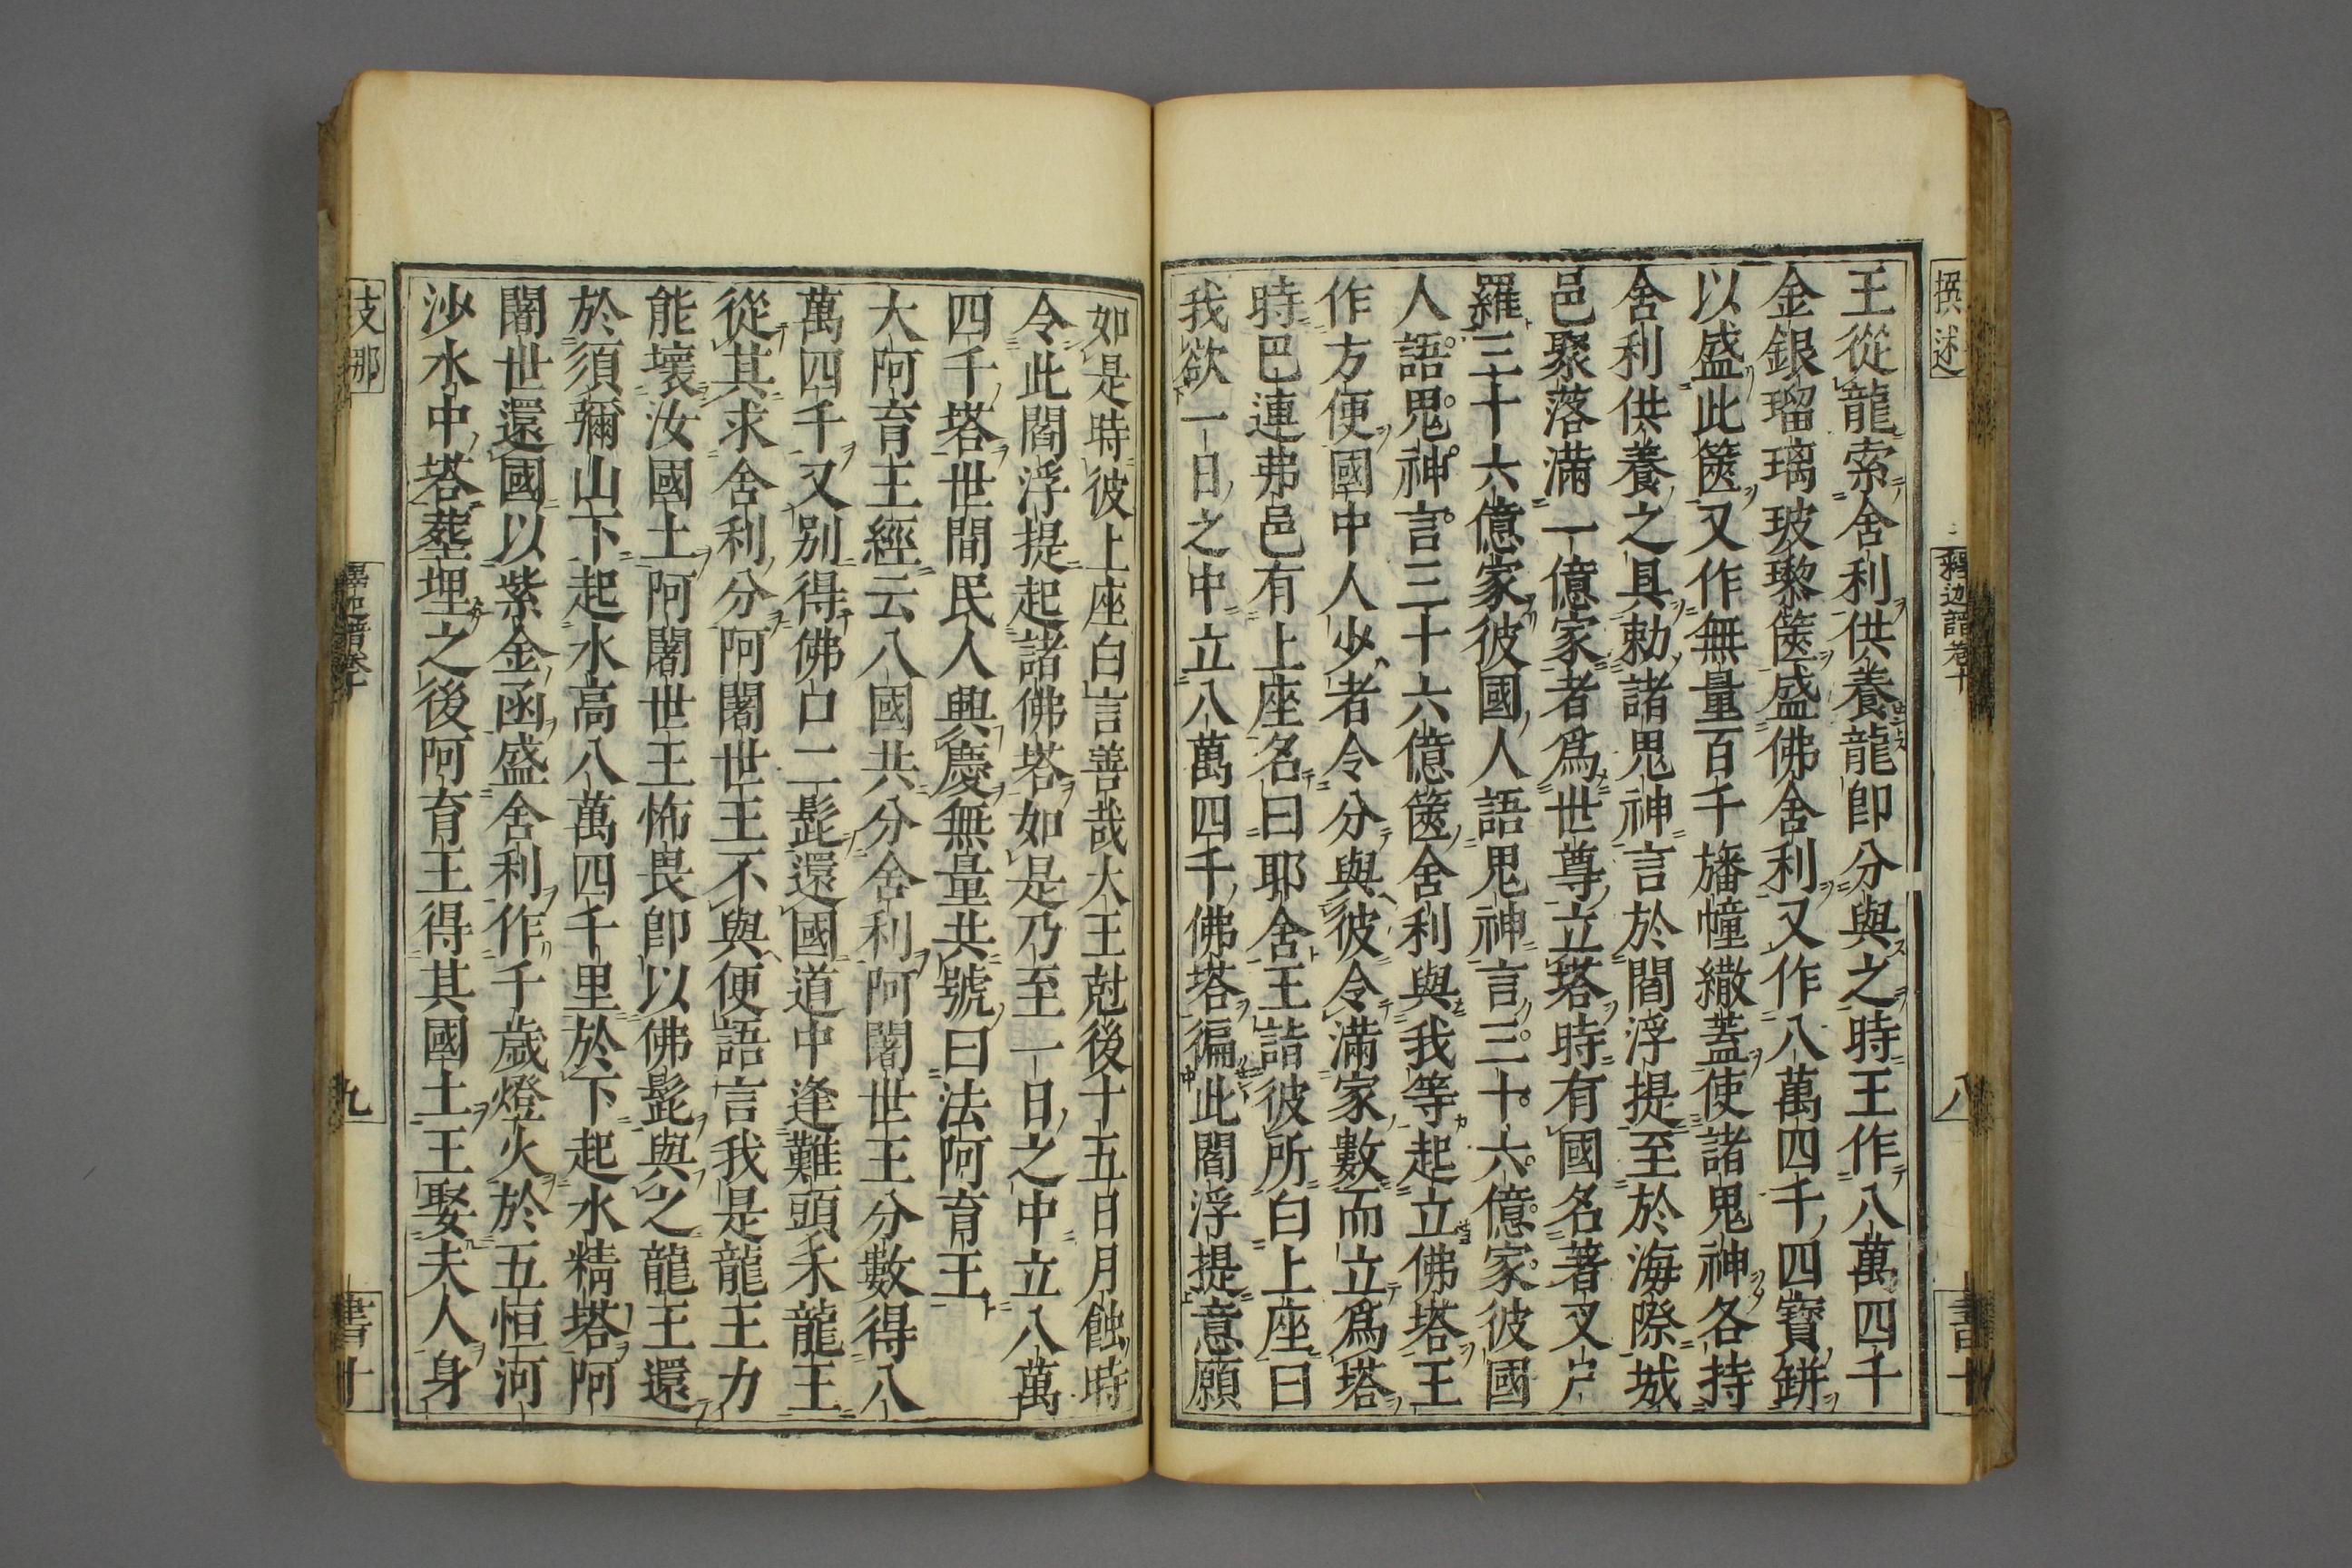 撰述
釋迦譜卷十
八
書十
王從龍索舍利供養龍卽分與之時王作八萬四千
金銀瑠璃玻瓈篋盛佛舍利又作八萬四千四寶缾
以盛此篋又作無量百千旛幢繖蓋使諸鬼神各持
舍利供養之具勑諸鬼神言於閻浮提至於海際城
邑聚落滿一億家者爲世尊立塔時有國名著叉尸
羅三十六億家彼國人語鬼神言三十六億家彼國
人語鬼神言三十六億篋舍利與我等起立佛塔王
作方便國中人少者令分與彼令滿家數而立爲塔
時巴連弗邑有上座名曰耶舍王詣彼所白上座曰
我欲一日之中立八萬四千佛塔徧此閻浮提意願
如是時彼上座白言善哉大王尅後十五日月蝕時
令此閻浮提起諸佛塔如是乃至一日之中立八萬
四千塔世間民人興慶無量共號曰法阿育王
大阿育王經云八國共分舍利阿闍世王分數得八
萬四千又別得佛口二髭還國道中逢難頭禾龍王
從其求舍利分阿闍世王不與便語言我是龍王力
能壞汝國土阿闍世王怖畏卽以佛髭與之龍王還
於須彌山下起水高八萬四千里於下起水精塔阿
闍世還國以紫金函盛舍利作千歲燈火於五恒河
沙水中塔塟埋之後阿育王得其國土王娶夫人身
支那
釋迦譜卷十
九
書十